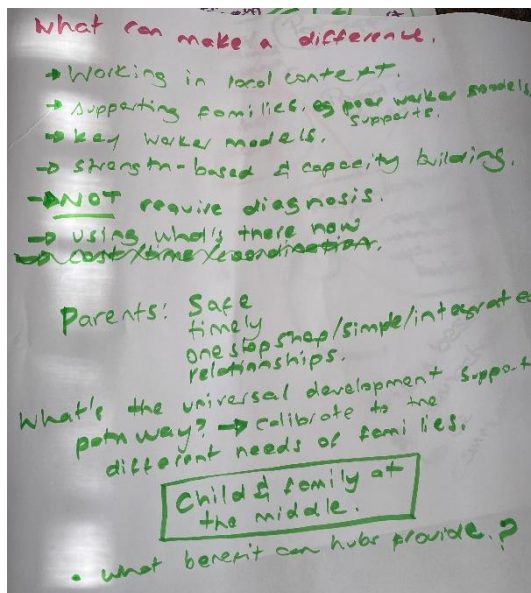 What can make a difference.
→ Working in local context.
→ Supporting families, eg peer worker models,
supports.
→ key worker models.
→ strength-based & capacity building.
→ NOT require diagnosis.
→ using what's there now
→ cost/time/coordination.
Parents: Safe
timely
one stop shop/simple/integrate
relationships.
What's the universal development support
pathway? → calibrate to the
different needs of families.
Child & family at
the middle.
• What benefit can hubs provide.?